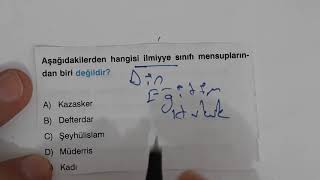 Aşağıdakilerden hangisi ilmiyye sınıfı mensupların-
dan biri değildir?
Din
Eğitim
A) Kazasker
B) Defterdar
C) Şeyhülislam
D) Müderris
Kadı